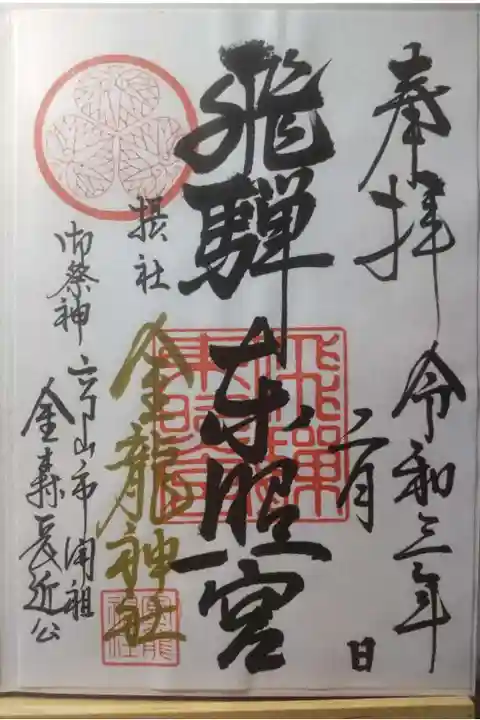 奉拝
令和三年
二月
日
飛騨東照宮
飛騨東照宮
摂社
金龍神社
金龍神社
高山市開祖
御祭神
金森長近公